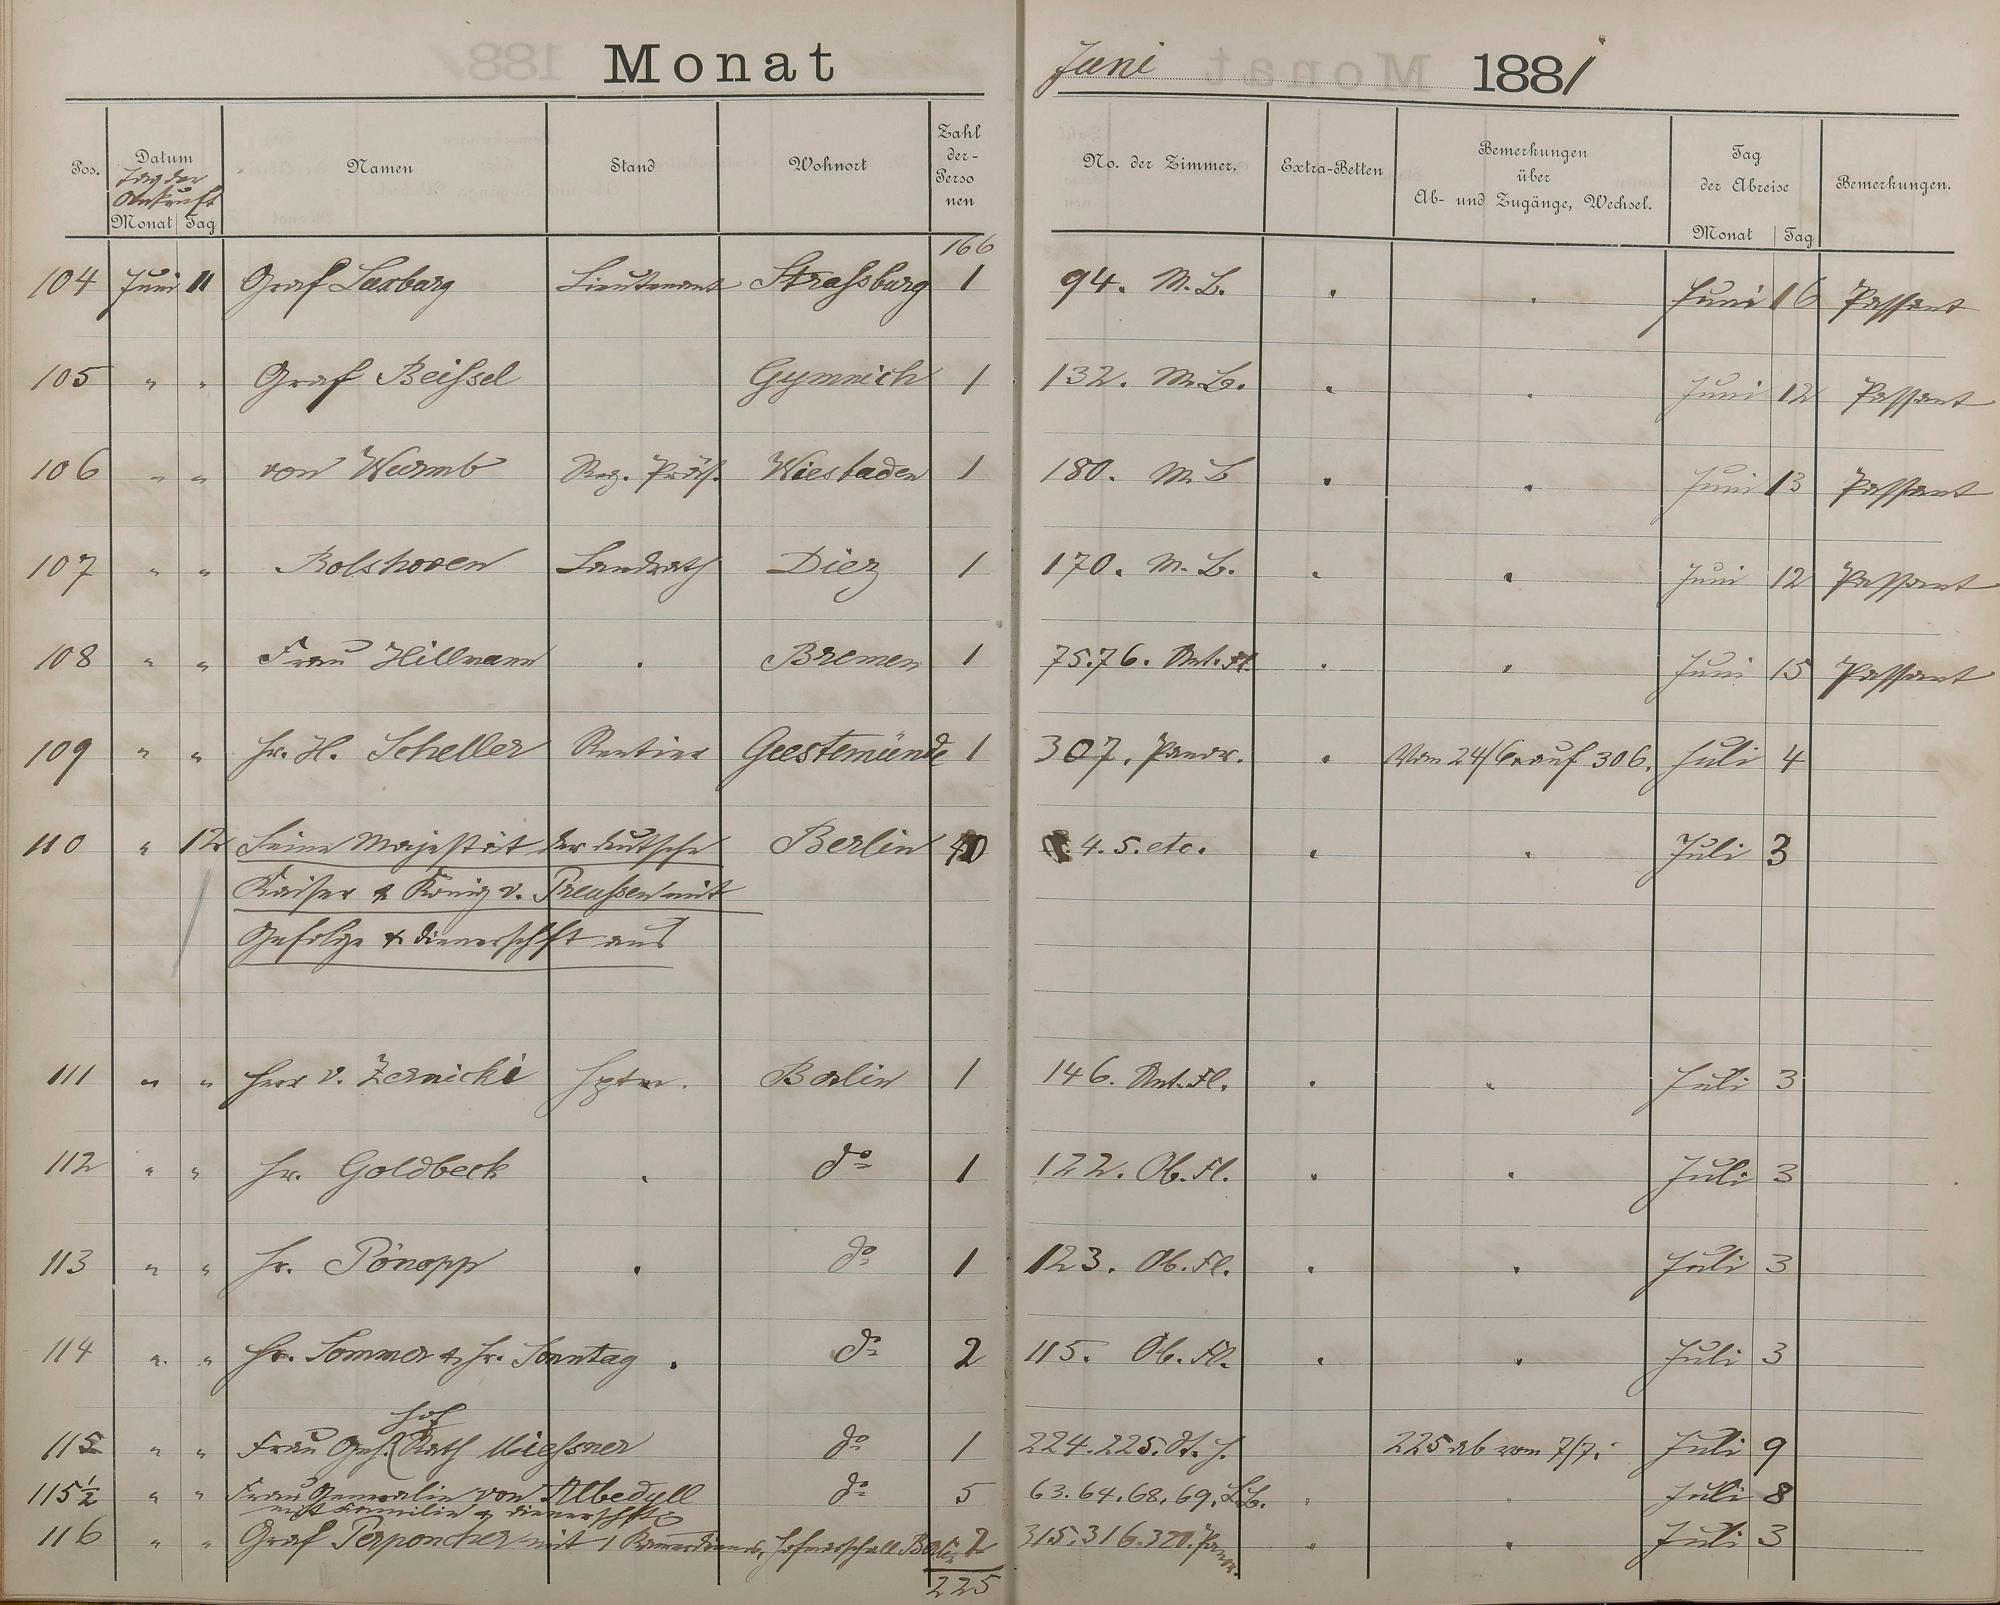 Monat Juni 1881
Pos. Datum Tag der Ankunft Monat Tag Namen Stand Wohnort Zahl der Personen No. der Zimmer. Extra-Betten Bemerkungen über Ab- und Zugänge, Wechsel. Tag der Abreise Monat Tag Bemerkungen.
166
104 Juni 11 Graf Lieutenant Strassburg 1 94. M. L. . . Juni 16 Passant
105 " " Graf Beissel Gymnich 1 132. M. L. . . Juni 12 Passant
106 " " von Wurmb Reg. Präs. Wiesbaden 1 180. M. L . . Juni 13 Passant
107 " " Bolshoven Landrath Diez 1 170. M. L. . . Juni 12 Passant
108 " " Frau Hillmann . Bremen 1 75.76. Unt. Fl. . . Juni 15 Passant
109 " " Hr. H. Scheller Rentier Geestemünde 1 307. Panor. . Vom 24/6. auf 306. Juli 4
110 " 12 Seine Majestät der deutsche Berlin 40 4. 5. etc. . . Juli 3
Kaiser & König v. Preussen mit
Gefolge & Dienerschft aus
111 " " Herr v. Zernicki Hptm. Berlin 1 146. Unt. Fl. . . Juli 3
112 " " Hr. Goldbeck . do 1 122. Ob. Fl. . . Juli 3
113 " " Hr. Pönopp . do 1 123. Ob. Fl. . . Juli 3
114 " " Hr. Sommer & Hr. Sonntag . do 2 115. Ob. Fl. . . Juli 3
Hof
115 " " Frau Geh. Rath Miessner do 1 224. 225. 225 ab vom 7/7. Juli 9
115½ " " Frau Generalin von Albedyll do 5 63. 64. 68. 69. . . Juli 8
mit Familie & Dienerschft
116 " " Graf Perponcher mit 1 Kammerdiener, Hofmarschall Berlin 2 315. 316. 320. Panor. . . Juli 3
225